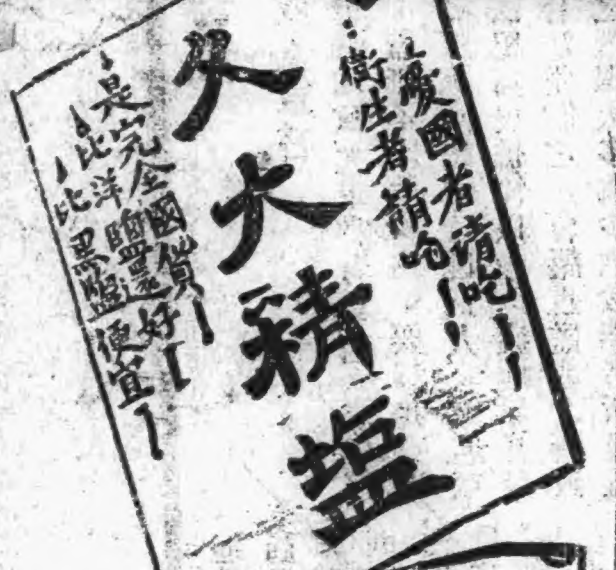 愛國者请吃！！
衛生者請吃！！
久大精塩
是完全國貨！
比洋鹽還好！
比黑鹽便宜！